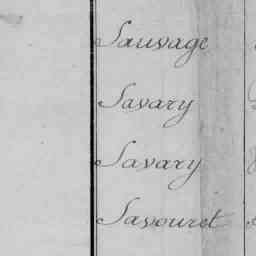 Sauvage
Savary
Savary
Savouret